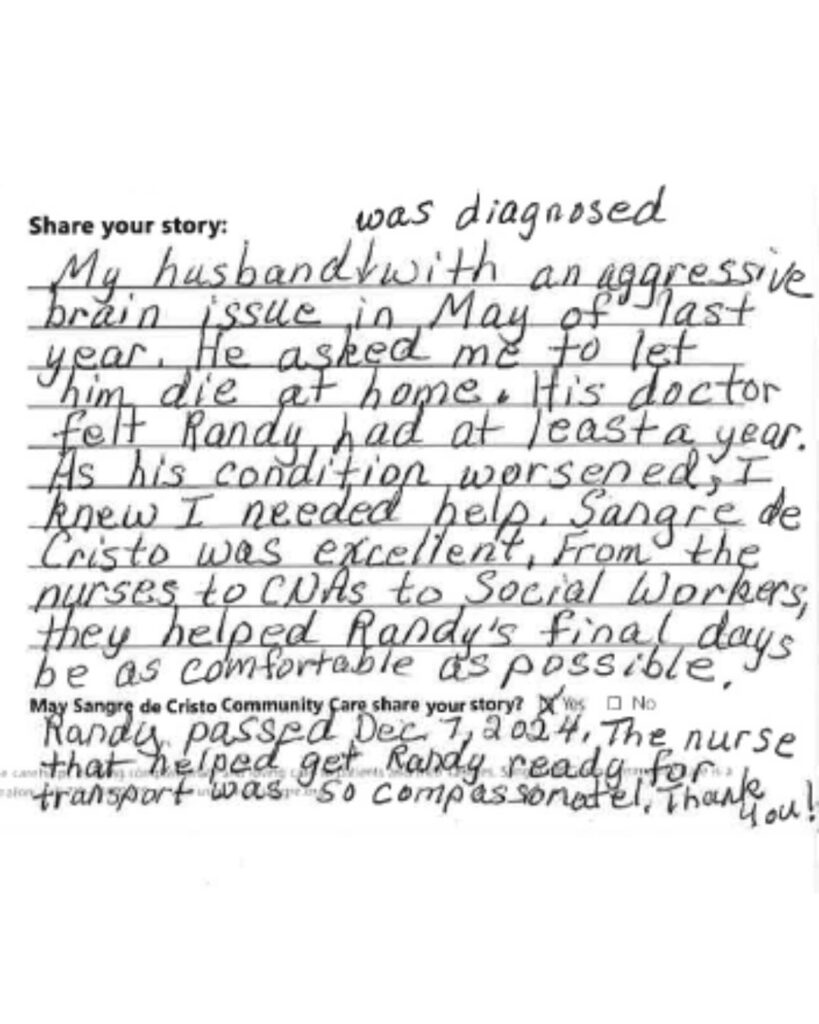 was diagnosed
Share your story:
My husband with an aggressive
brain issue in May of last
year. He asked me to let
him die at home. His doctor
felt Randy had at least a year.
As his condition worsened, I
knew I needed help. Sangre de
Cristo was excellent. From the
nurses to CNAs to Social Workers,
they helped Randy's final days
be as comfortable as possible.
May Sangre de Cristo Community Care share your story? Yes No
Randy passed Dec. 7, 2024. The nurse
that helped get Randy ready for
transport was so compassionatel. Thank
you!